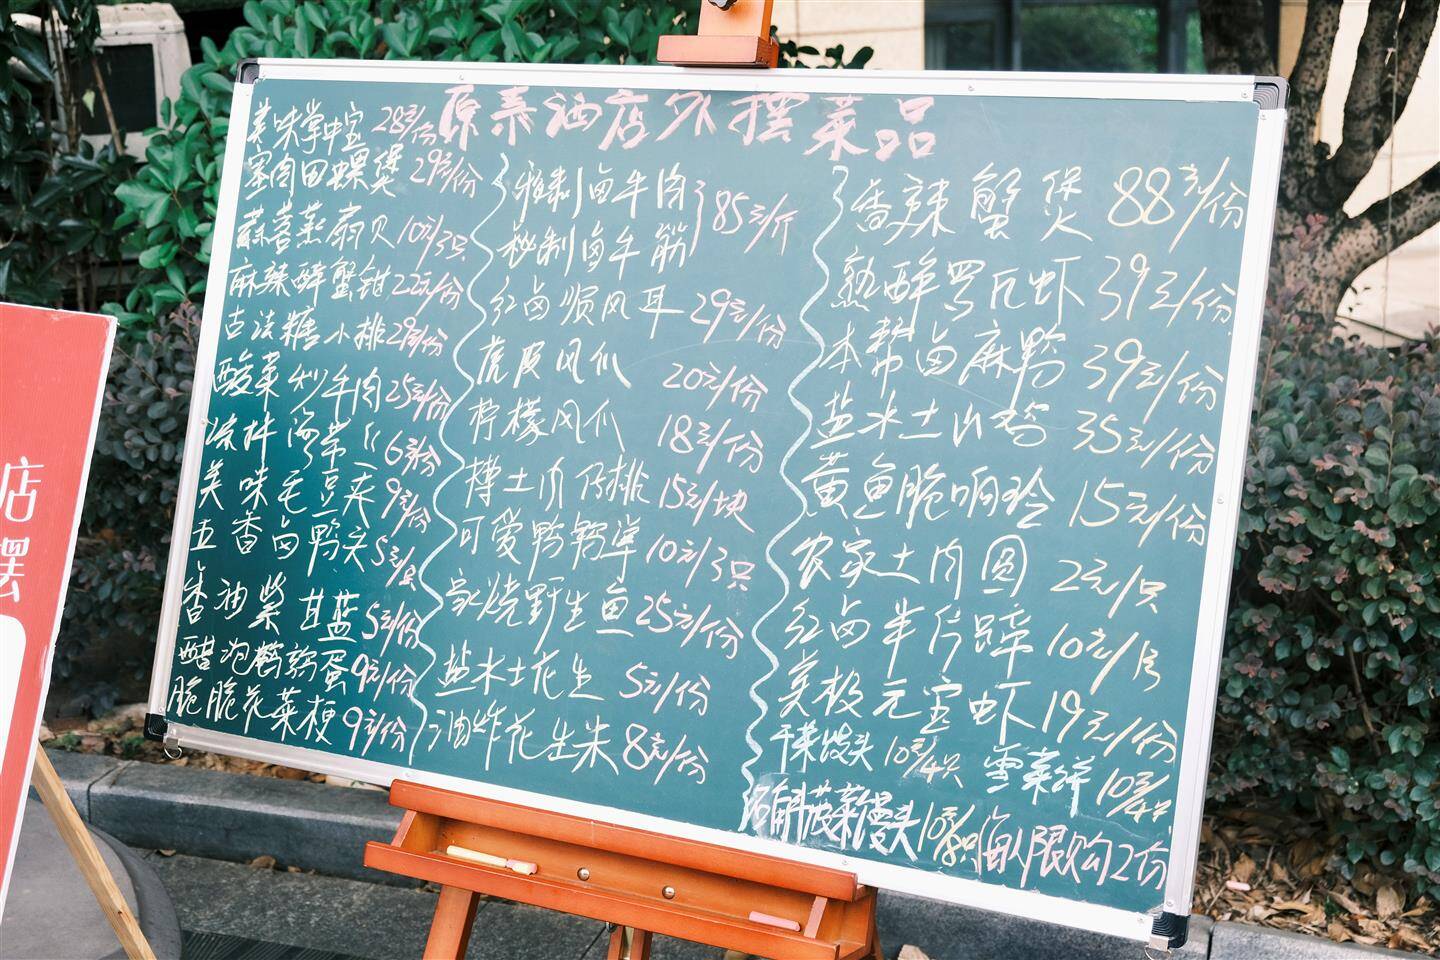 原素酒店外摆菜品
美味掌中宝 28元/份
塞肉田螺煲 29元/份
蒜蓉蒸扇贝 10元/3只
麻辣醉蟹钳 22元/份
古法糖小排 29元/份
酸菜炒牛肉 25元/份
凉拌海带丝 6元/份
美味毛豆夹 9元/份
五香卤鸭头 5元/只
香油紫甘蓝 5元/份
醋泡鹌鹑蛋 9元/份
脆脆花菜梗 9元/份
雅制卤牛肉
秘制卤牛筋
85元/斤
红卤顺风耳 29元/份
虎皮凤爪 20元/份
柠檬凤爪 18元/份
土肉 排 15元/块
可爱鸭 10元/3只
烧野生鱼 25元/份
盐水土花生 5元/份
油炸花生米 8元/份
香辣蟹煲 88元/份
熟醉罗氏虾 39元/份
本帮卤麻鸭 39元/份
盐水土山鸡 35元/份
黄鱼脆响铃 15元/份
农家土肉圆 2元/只
红卤羊片蹄 10元/片
美极元宝虾 19元/份
干菜馒头 10元/4只 雪菜饼 10元/4只
石斛菠菜馒头 10元/ 只 每人限购2份
店
摆